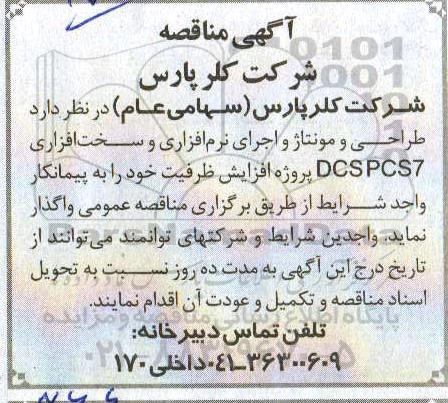 آگهی مناقصه
شرکت کلر پارس
شرکت کلر پارس (سهامی عام) در نظر دارد
طراحی و مونتاژ و اجرای نرم‌افزاری و سخت‌افزاری
DCS PCS7 پروژه افزایش ظرفیت خود را به پیمانکار
واجد شرایط از طریق برگزاری مناقصه عمومی واگذار
نماید. واجدین شرایط و شرکتهای توانمند می‌توانند از
تاریخ درج این آگهی به مدت ده روز نسبت به تحویل
اسناد مناقصه و تکمیل و عودت آن اقدام نمایند.
پایگاه اطلاع رسانی مناقصه و مزایده
تلفن تماس دبیرخانه:
۰۴۱-۳۶۳۰۰۶۰۹ داخلی ۱۷۰